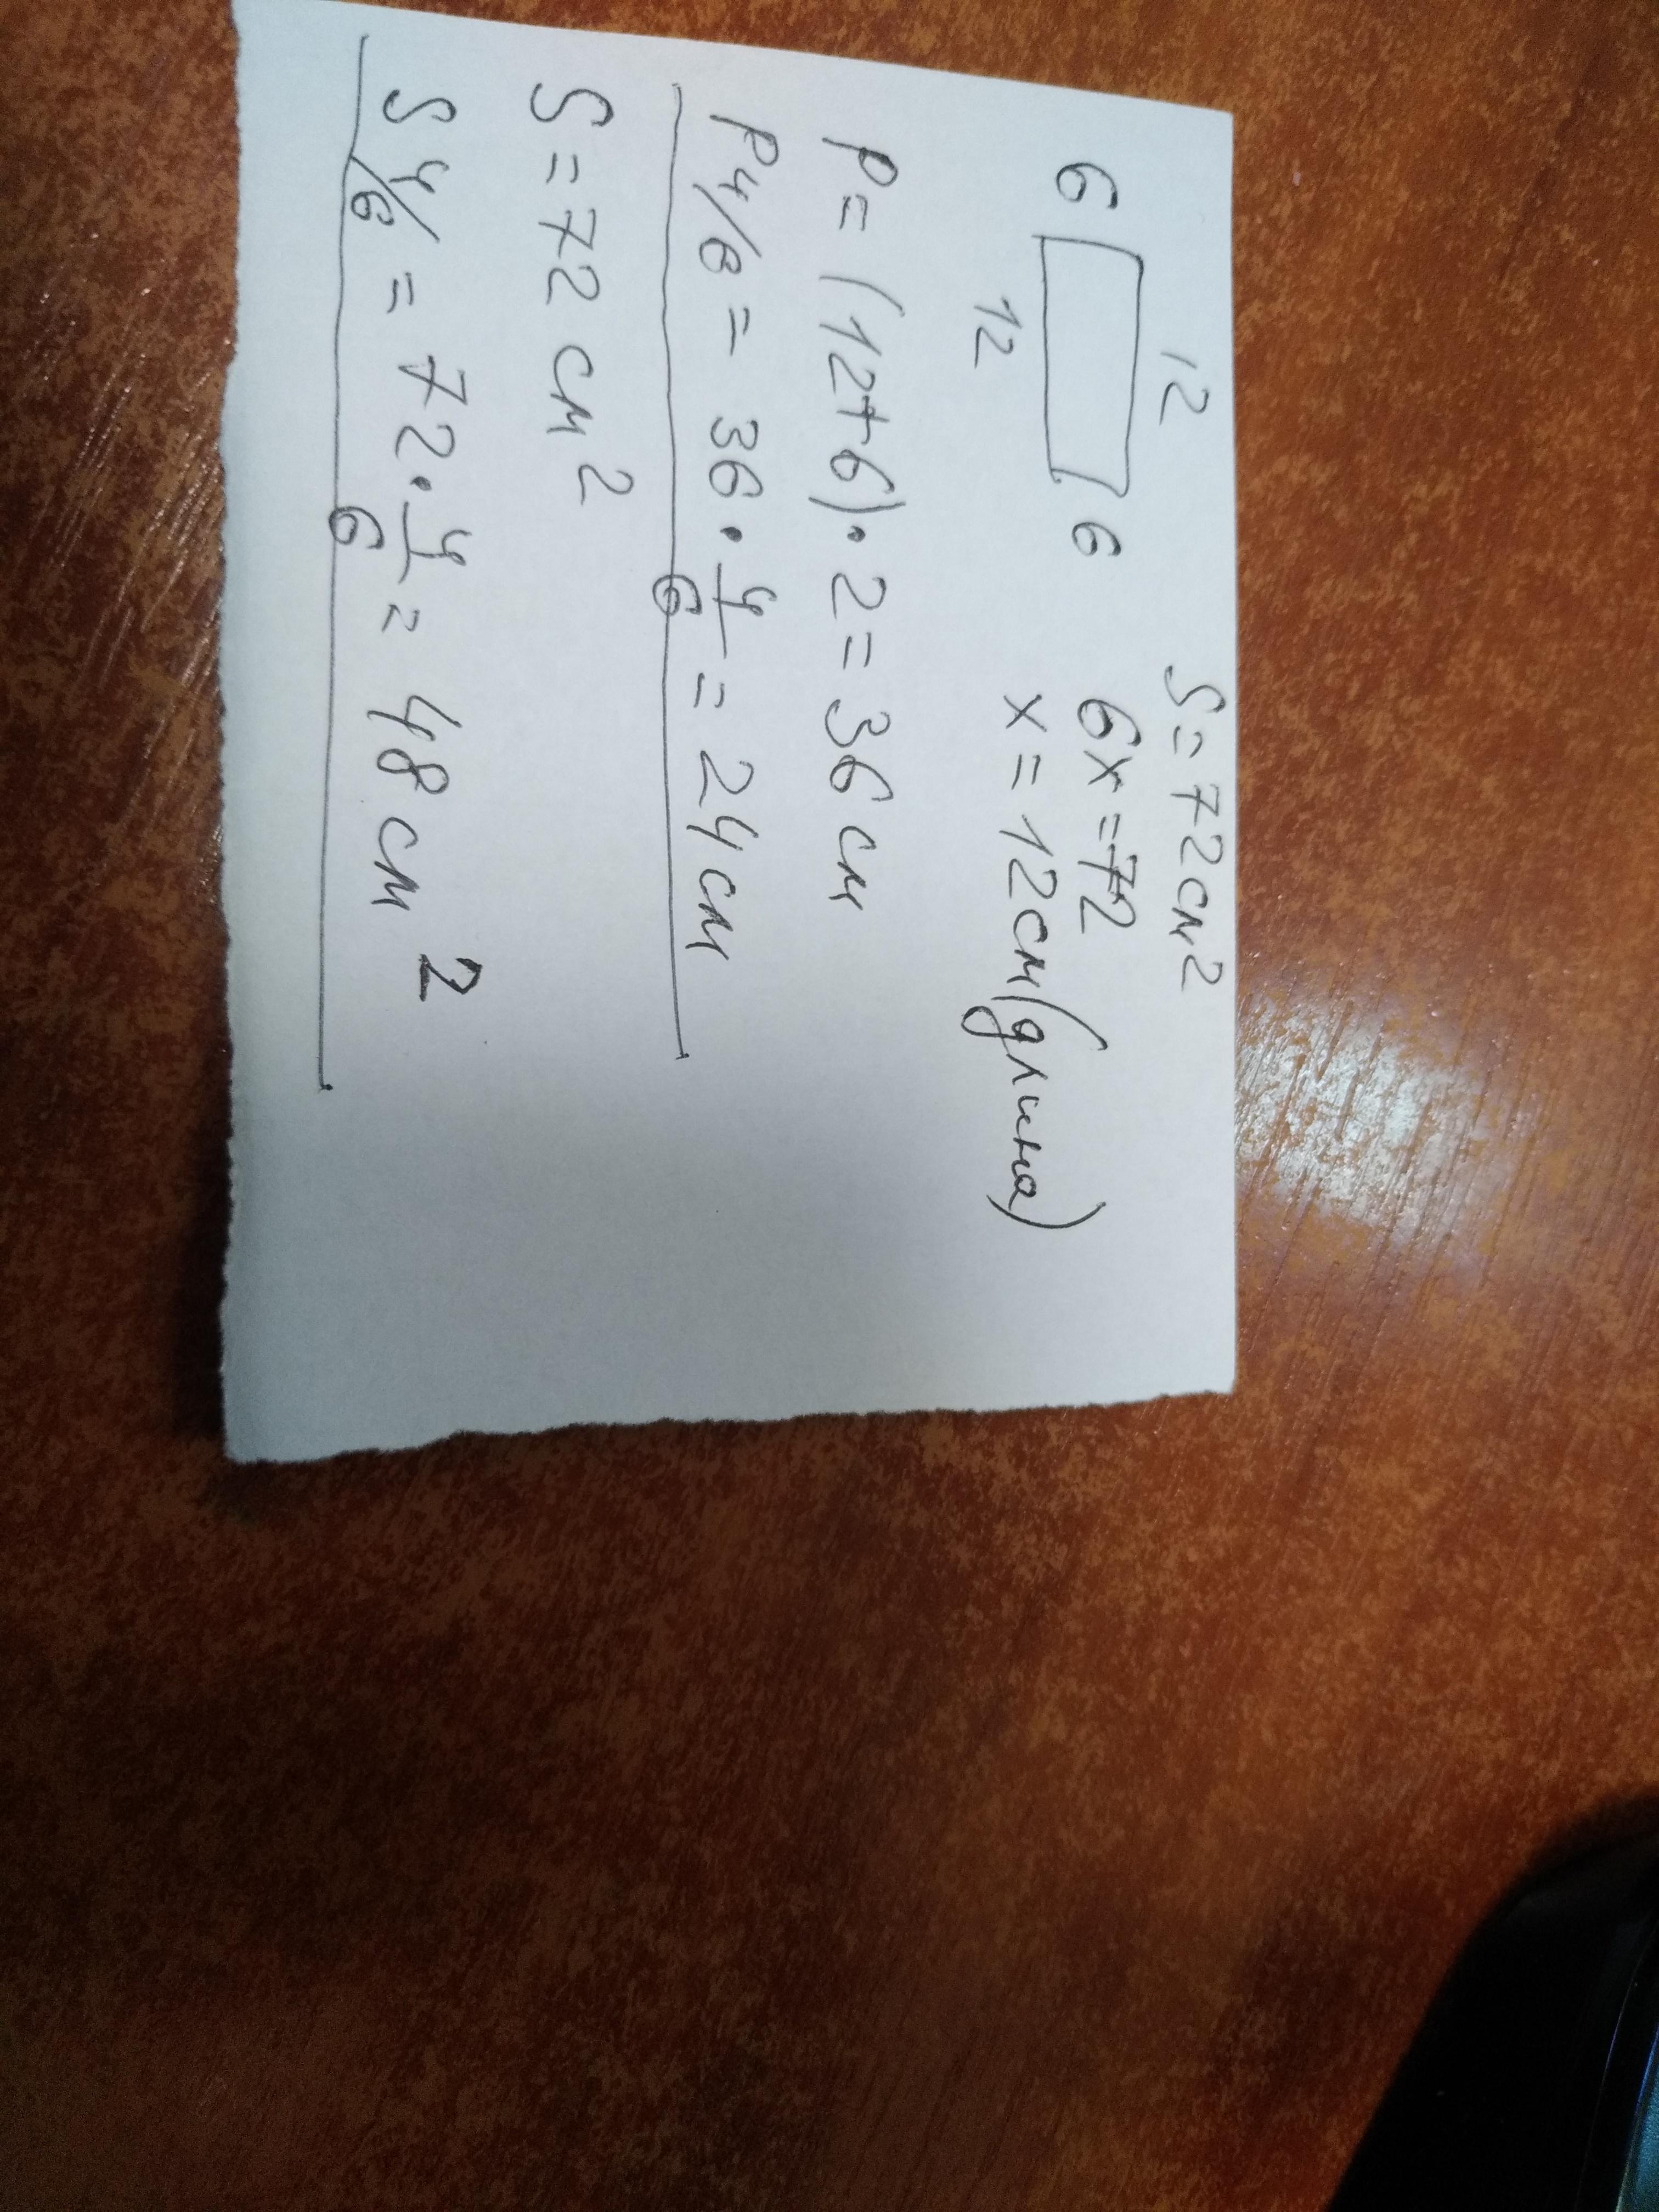 12
6 6
12
S = 72 см²
6x = 72
x = 12 см (длина)
P = (12+6) · 2 = 36 см
P 4/6 = 36 · 4/6 = 24 см
S = 72 см²
S 4/6 = 72 · 4/6 = 48 см²